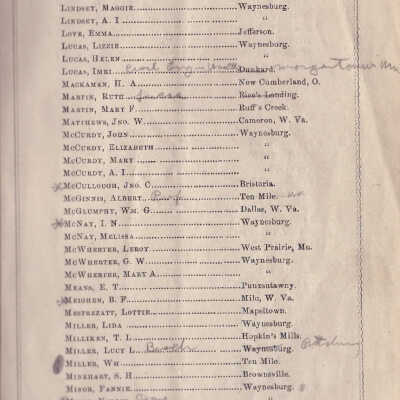 LINDSEY, MAGGIE Waynesburg.
LINDSEY, A. I. "
LOVE, EMMA Jefferson.
LUCAS, LIZZIE Waynesburg.
LUCAS, HELEN "
LUCAS, IMRI Dunkard.
MACKAMAN, H. A. New Cumberland, O.
MARTIN, RUTH Rice's Landing.
MARTIN, MARY F. Ruff's Creek.
MATTHEWS, JNO. W. Cameron, W. Va.
MCCURDY, JOHN Waynesburg.
MCCURDY, ELIZABETH "
MCCURDY, MARY "
MCCURDY, A. I. "
MCCULLOUGH, JNO. C. Bristoria.
MCGINNIS, ALBERT, Prof. Ten Mile.
MCGLUMPHY, WM. G. Dallas, W. Va.
MCNAY, I. N. Waynesburg.
MCNAY, MELISSA "
MCWHERTER, LEROY West Prairie, Mo.
MCWHERTER, G. W. Waynesburg.
MCWHERTER, MARY A. "
MEANS, E. T. Punxsutawny.
MEIGHEN, B. F. Milo, W. Va.
MESTREZATT, LOTTIE Mapeltown.
MILLER, LIDA Waynesburg.
MILLIKEN, T. L. Hopkin's Mills.
MILLER, LUCY L. Waynesburg.
MILLER, WM. Ten Mile.
MINEHART, S. H. Brownsville.
MINOR, FANNIE Waynesburg.